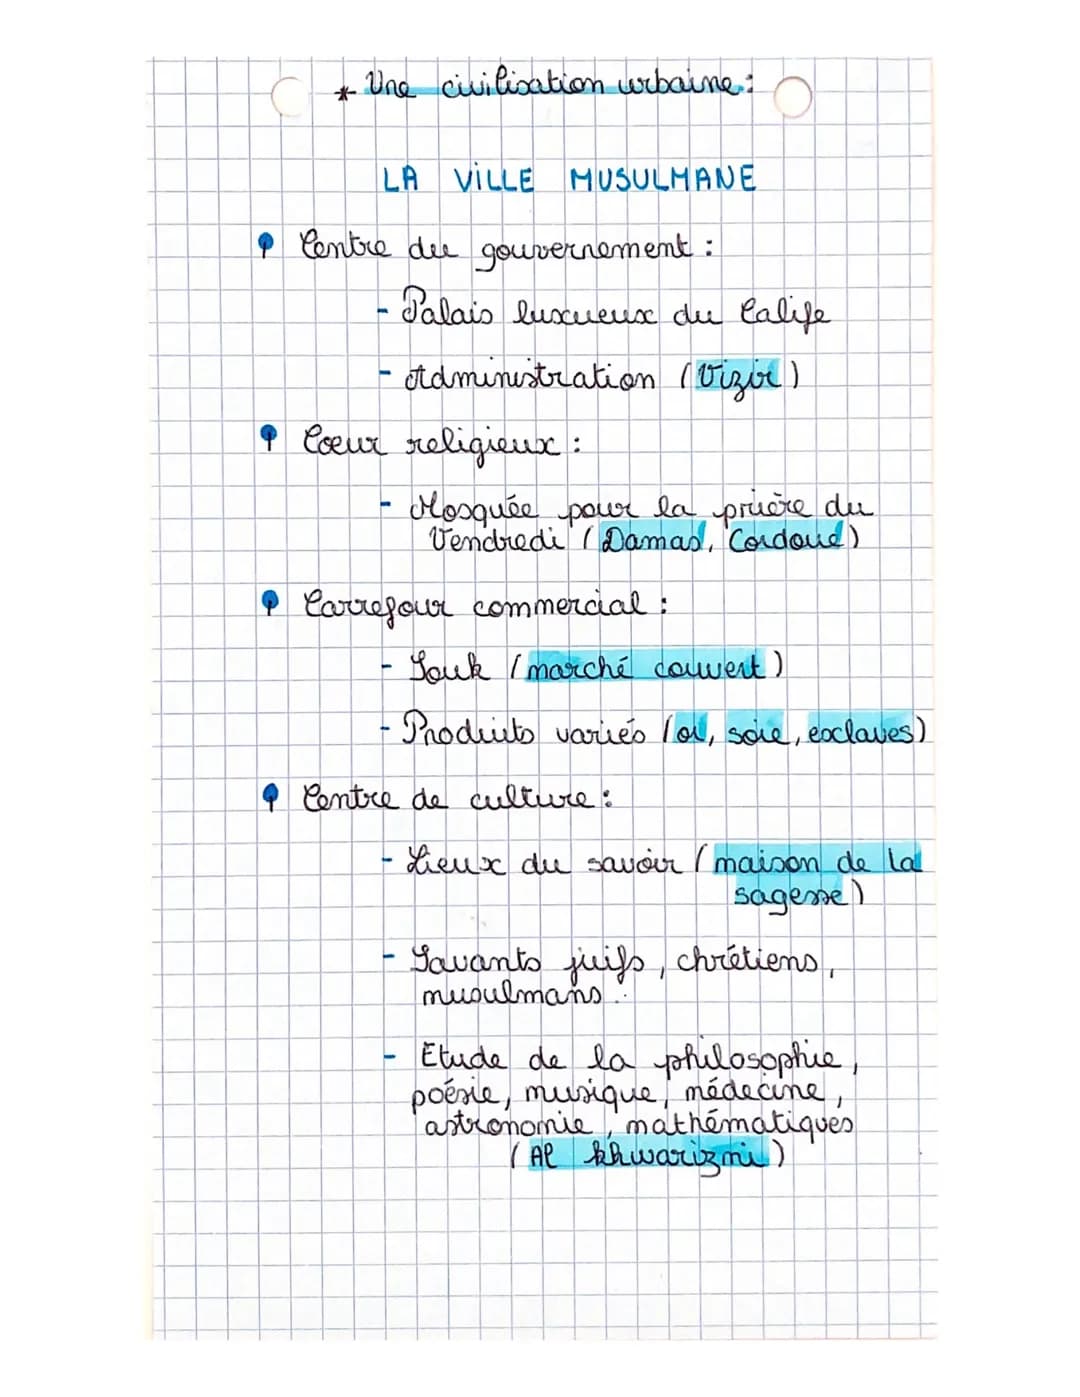 * Une civilisation urbaine :
LA VILLE MUSULMANE
Centre du gouvernement :
- Palais luxueux du Calife
- Administration (Vizir)
Coeur religieux :
- Mosquée pour la prière du
Vendredi (Damas, Cordoue)
Carrefour commercial :
- Souk (marché couvert)
- Produits variés (or, soie, esclaves)
Centre de culture :
- Lieux du savoir (maison de la
sagesse)
- Savants juifs, chrétiens,
musulmans..
- Etude de la philosophie,
poésie, musique, médecine,
astronomie, mathématiques
(Al khwarizmi)